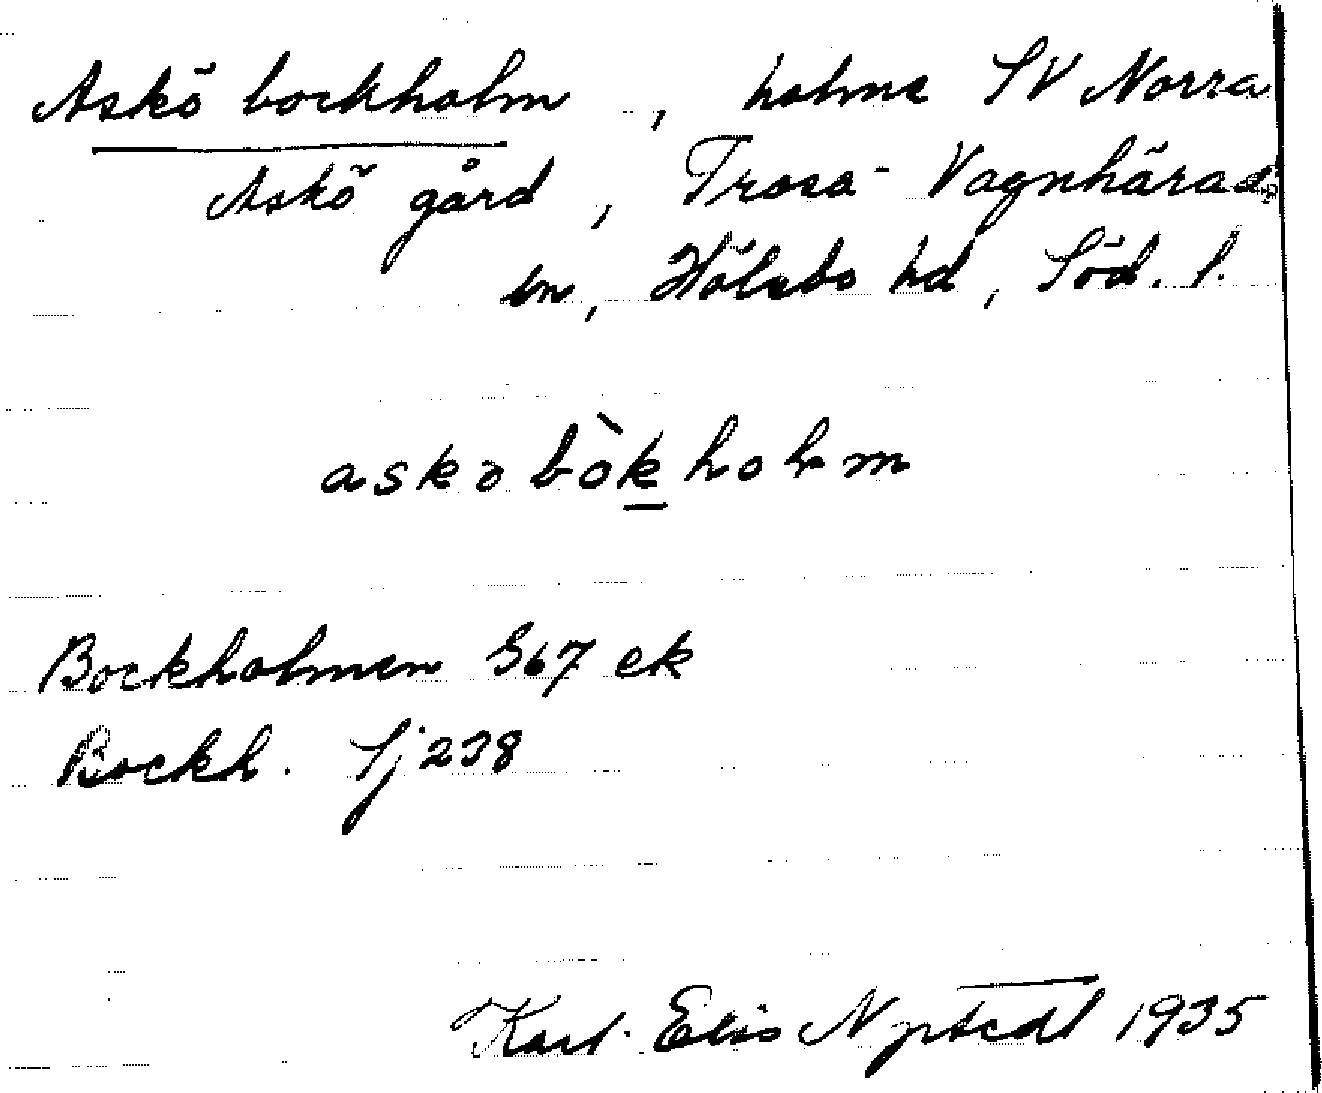 Askö bockholm, holme SV Norra
Askö gård, Trosa-Vagnhärads
sn, Hölebo hd, Söd. l.
askobòkholm
Bockholmen G67 ek
Bockh. Sj 238
Karl-Elis Nystedt 1935